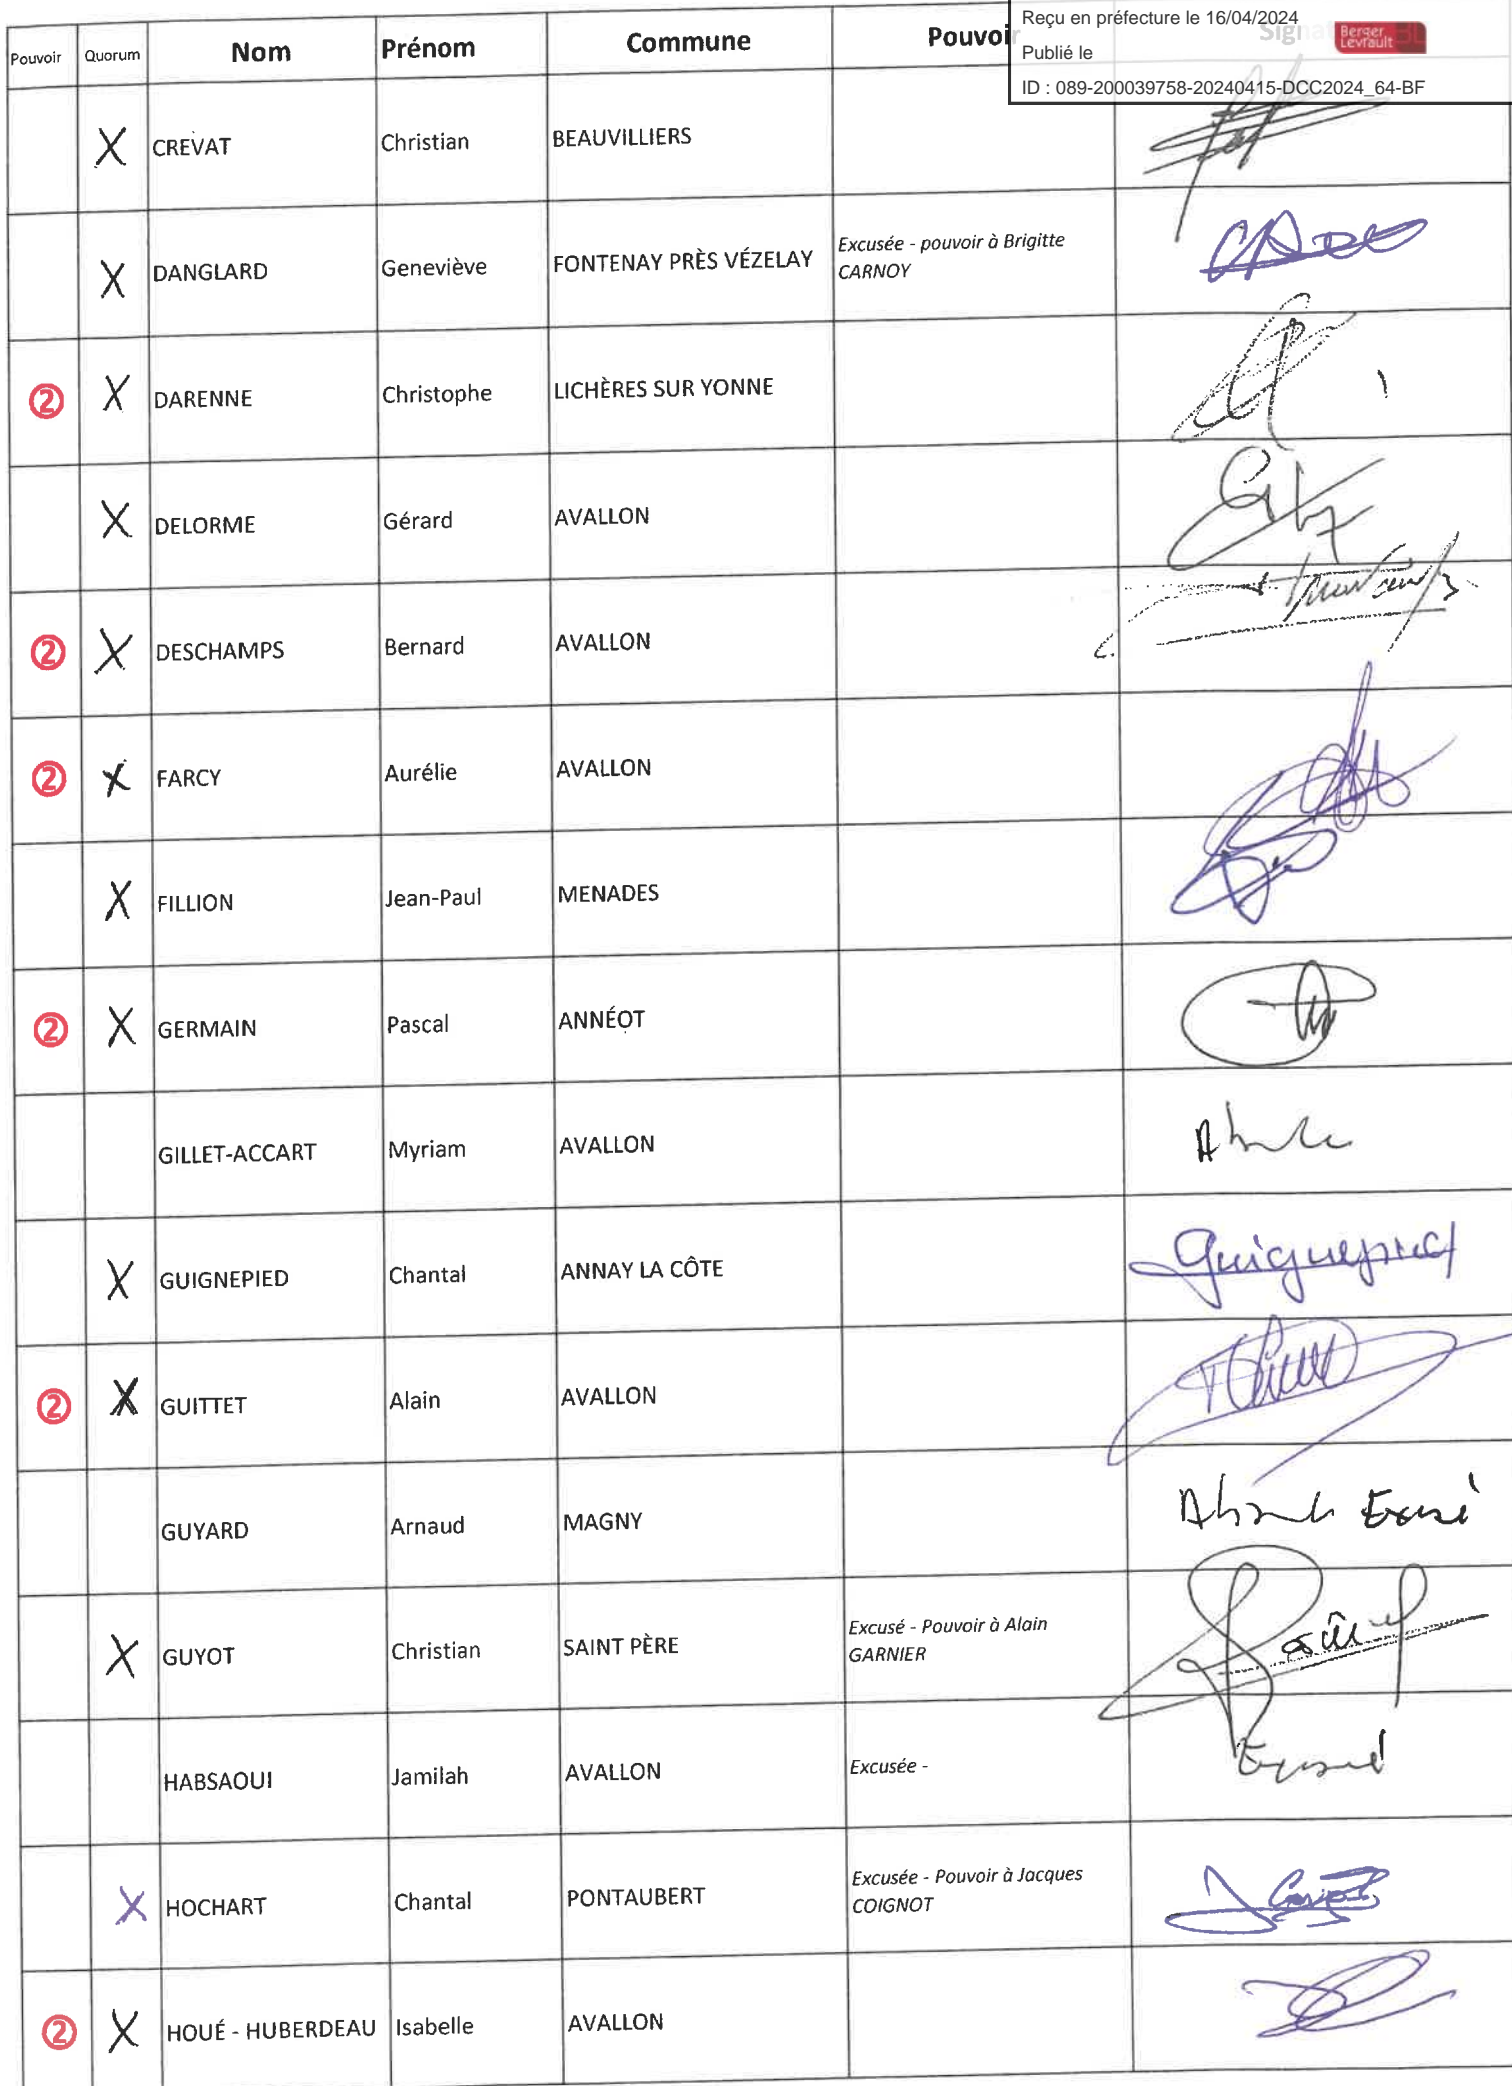 Reçu en préfecture le 16/04/2024
Publié le
ID : 089-200039758-20240415-DCC2024_64-BF
Berger Levrault
Pouvoir Quorum Nom Prénom Commune Pouvoir Signa
X CREVAT Christian BEAUVILLIERS
X DANGLARD Geneviève FONTENAY PRÈS VÉZELAY Excusée - pouvoir à Brigitte
CARNOY
② X DARENNE Christophe LICHÈRES SUR YONNE
X DELORME Gérard AVALLON
② X DESCHAMPS Bernard AVALLON
② X FARCY Aurélie AVALLON
X FILLION Jean-Paul MENADES
② X GERMAIN Pascal ANNÉOT
GILLET-ACCART Myriam AVALLON
X GUIGNEPIED Chantal ANNAY LA CÔTE Guignepied
② X GUITTET Alain AVALLON
GUYARD Arnaud MAGNY
X GUYOT Christian SAINT PÈRE Excusé - Pouvoir à Alain
GARNIER
HABSAOUI Jamilah AVALLON Excusée -
X HOCHART Chantal PONTAUBERT Excusée - Pouvoir à Jacques
COIGNOT
② X HOUÉ - HUBERDEAU Isabelle AVALLON